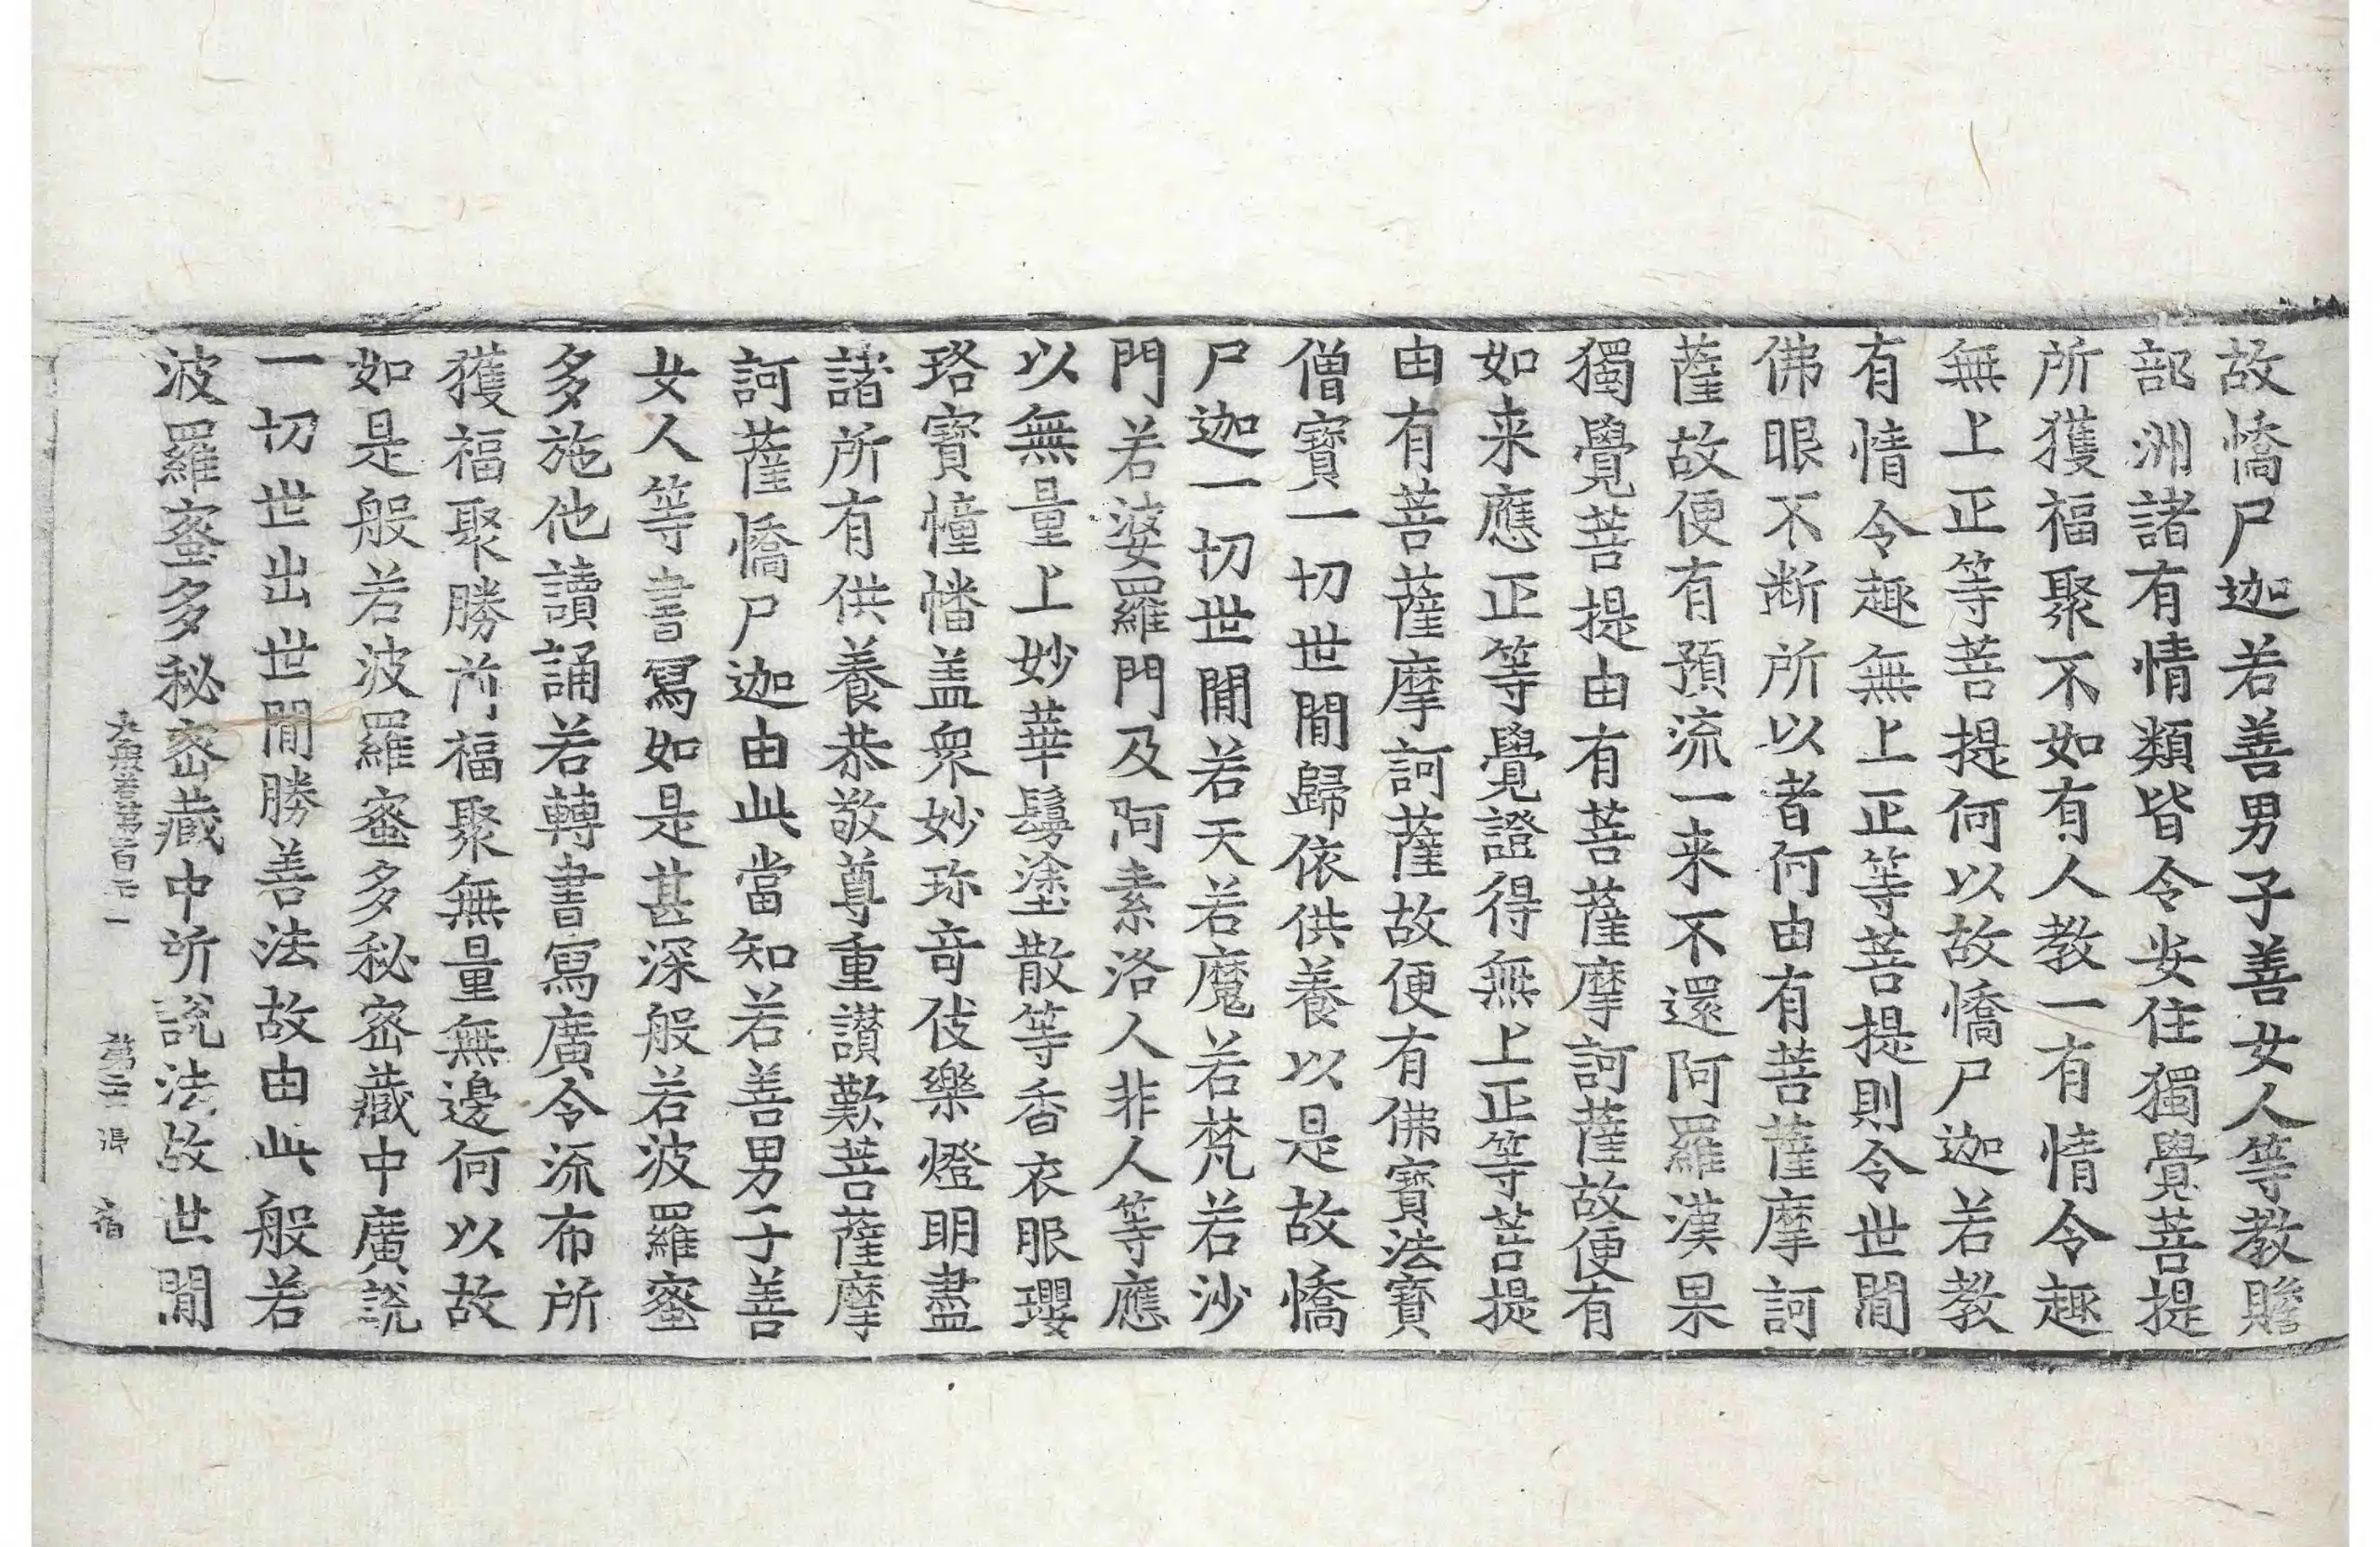 故憍尸迦若善男子善女人等教贍
部洲諸有情類皆令安住獨覺菩提
所獲福聚不如有人教一有情令趣
無上正等菩提何以故憍尸迦若教
有情令趣無上正等菩提則令世間
佛眼不断所以者何由有菩薩摩訶
薩故便有預流一来不還阿羅漢果
獨覺菩提由有菩薩摩訶薩故便有
如来應正等覺證得無上正等菩提
由有菩薩摩訶薩故便有佛寶法寶
僧寶一切世間歸依供養以是故憍
尸迦一切世間若天若魔若梵若沙
門若婆羅門及阿素洛人非人等應
以無量上妙華鬘塗散等香衣服瓔
珞寶幢幡盖衆妙珎竒伎樂燈明盡
諸所有供養恭敬尊重讃歎菩薩摩
訶薩憍尸迦由此當知若善男子善
女人等書寫如是甚深般若波羅蜜
多施他讀誦若轉書寫廣令流布所
獲福聚勝前福聚無量無邊何以故
如是般若波羅蜜多秘密藏中廣説
一切世出世間勝善法故由此般若
波羅蜜多秘密藏中所説法故世間
大般若第百三十一 第二張 宿